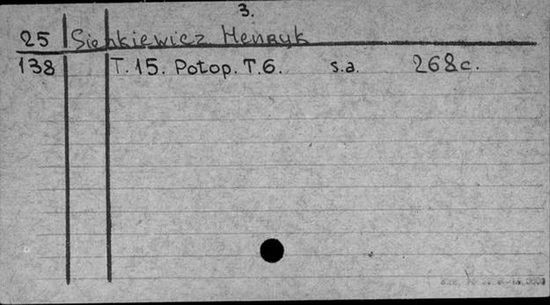 3.
25 Sienkiewicz Henryk
138 T. 15. Potop. T. 6. s.a. 268c.